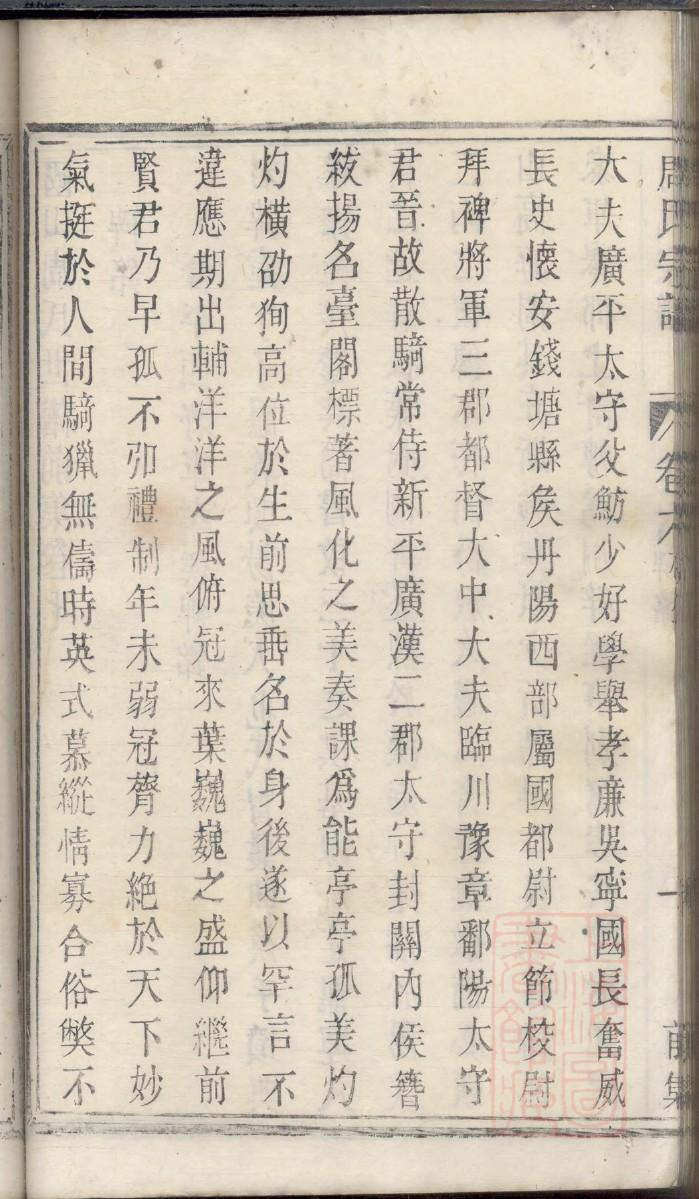 周氏宗譜 卷六 一 前集
大夫廣平太守父魴少好學舉孝廉吳寧國長奮威
長史懷安錢塘縣侯丹陽西部屬國都尉立節校尉
拜裨將軍三郡都督大中大夫臨川豫章鄱陽太守
君晉故散騎常侍新平廣漢二郡太守封關內侯簪
紱揚名臺閣標著風化之美奏課為能亭亭孤美灼
灼橫劭狥高位於生前思垂名於身後遂以罕言不
違應期出輔洋洋之風俯冠來葉巍巍之盛仰繼前
賢君乃早孤不弘禮制年未弱冠膂力絕於天下妙
氣挺於人間騎獵無儔時英式慕縱情寡合俗獘不